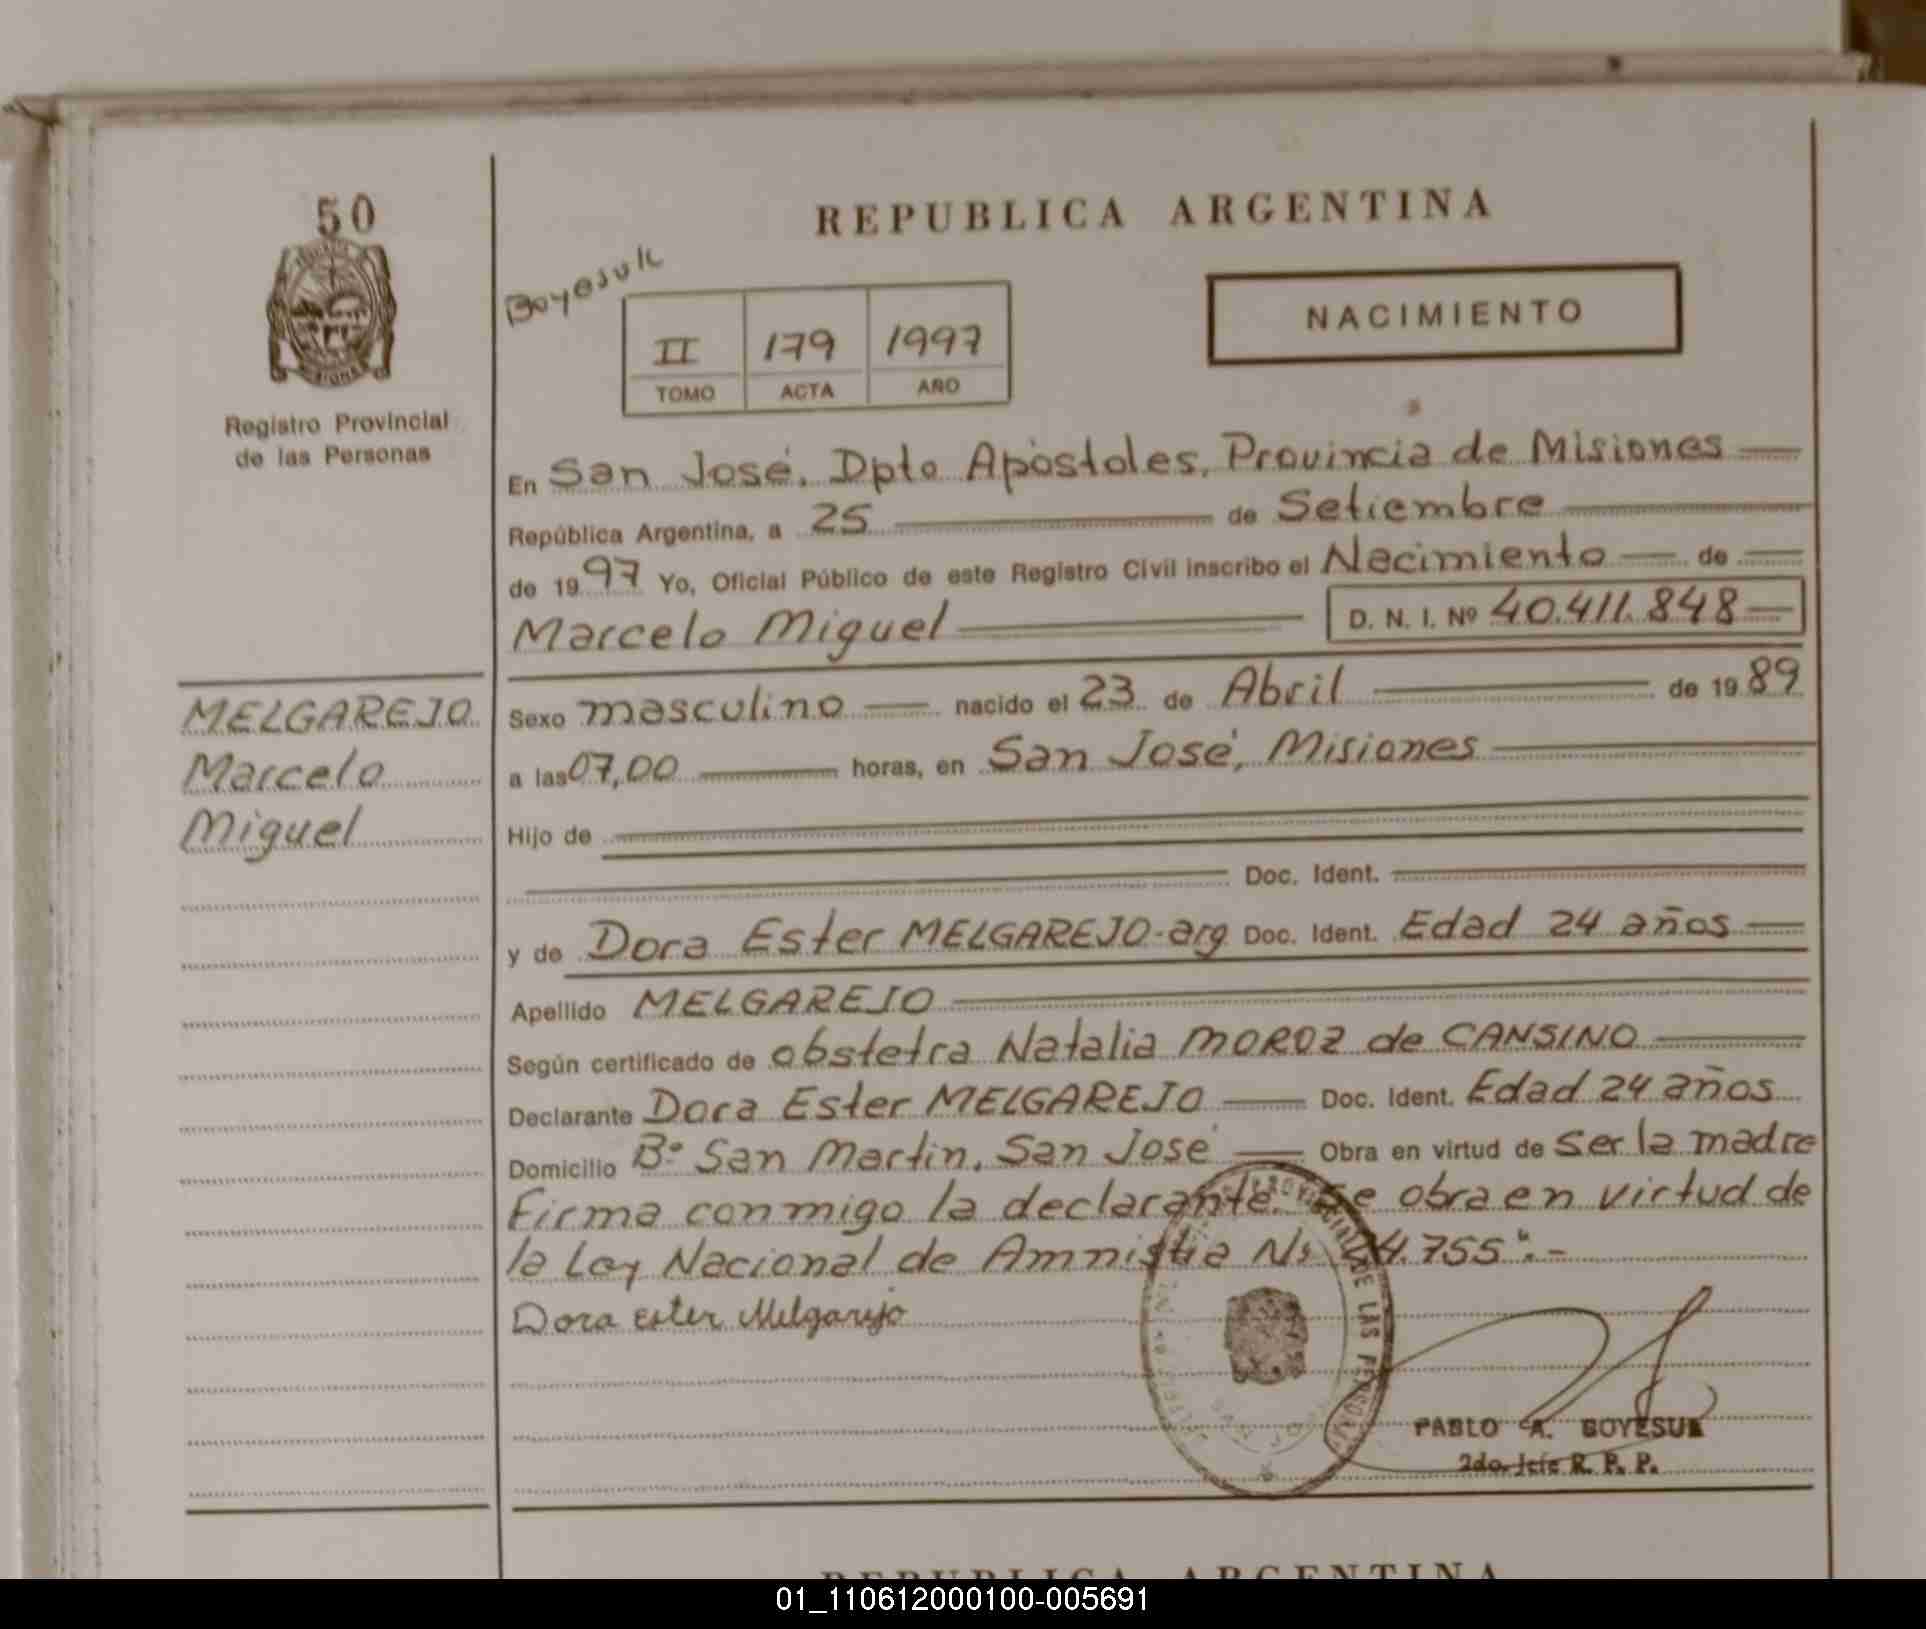 50
REPUBLICA ARGENTINA
Boyesuk
NACIMIENTO
II 179 1997
TOMO ACTA AÑO
Registro Provincial
de las Personas
En San José, Dpto Apóstoles, Provincia de Misiones
República Argentina, a 25 de Setiembre
de 1997 Yo, Oficial Público de este Registro Civil inscribo el Nacimiento de
Marcelo Miguel D. N. I. Nº 40.411.848
MELGAREJO
Marcelo
Miguel
Sexo masculino nacido el 23 de Abril de 1989
a las 07,00 horas, en San José, Misiones
Hijo de
Doc. Ident.
y de Dora Ester MELGAREJO-arg Doc. Ident. Edad 24 años
Apellido MELGAREJO
Según certificado de obstetra Natalia MOROZ de CANSINO
Declarante Dora Ester MELGAREJO Doc. Ident. Edad 24 años
Domicilio Bº San Martin, San José Obra en virtud de ser la madre
Firma conmigo la declarante. Se obra en virtud de
la Ley Nacional de Amnistia Nº 24.755".-
Dora Ester Melgarejo
PROVINCIAL DE LAS PERSONAS
PABLO A. BOYESUK
2do. Jefe R. P. P.
REPUBLICA ARGENTINA
01_110612000100-005691